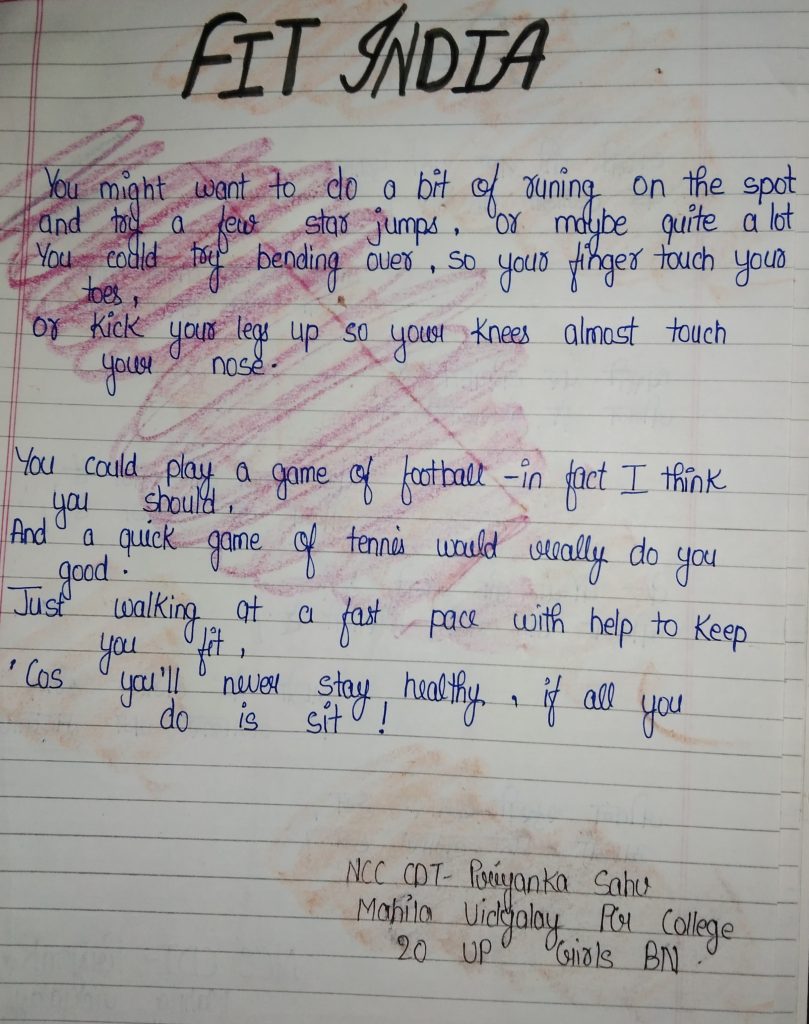 FIT INDIA
You might want to do a bit of runing on the spot
and try a few star jumps, or maybe quite a lot
You could try bending over, so your finger touch your
toes,
or kick your legs up so your knees almost touch
your nose.
You could play a game of football -in fact I think
you should,
And a quick game of tennis would really do you
good.
Just walking at a fast pace with help to keep
you fit,
'Cos you'll never stay healthy, if all you
do is sit!
NCC CDT- Priyanka Sahu
Mahila Vidyalay PG College
20 UP Girls BN.